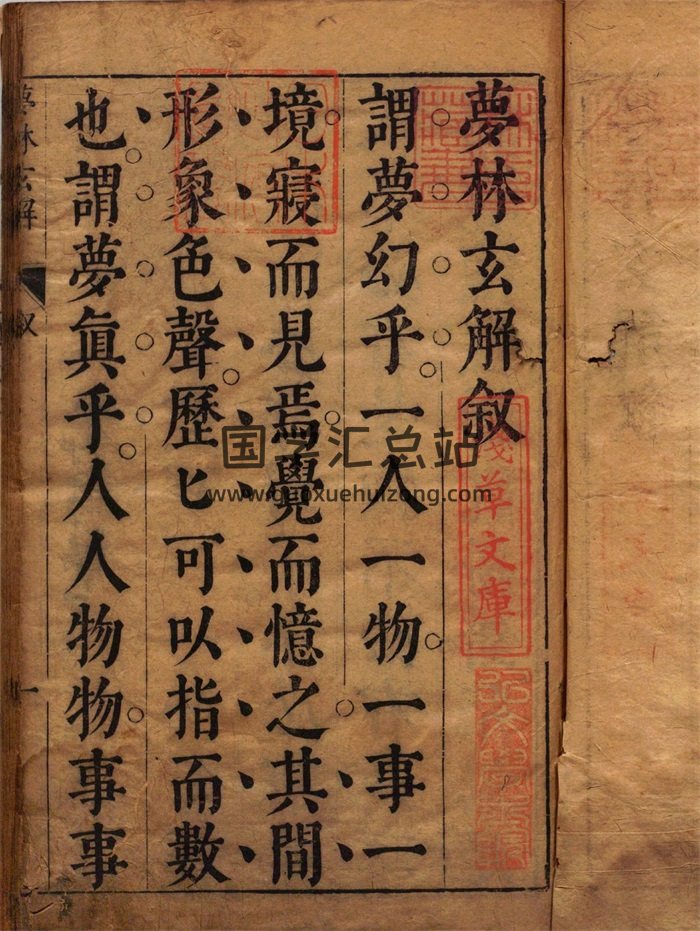 夢林玄解叙
謂夢幻乎一人一物一事一
境寢而見焉覺而憶之其間
形象色聲歷匕可以指而數
也謂夢眞乎人人物物事事
夢林玄解 叙 一
淺草文庫
国学汇总站
www.guoxuehuizong.com